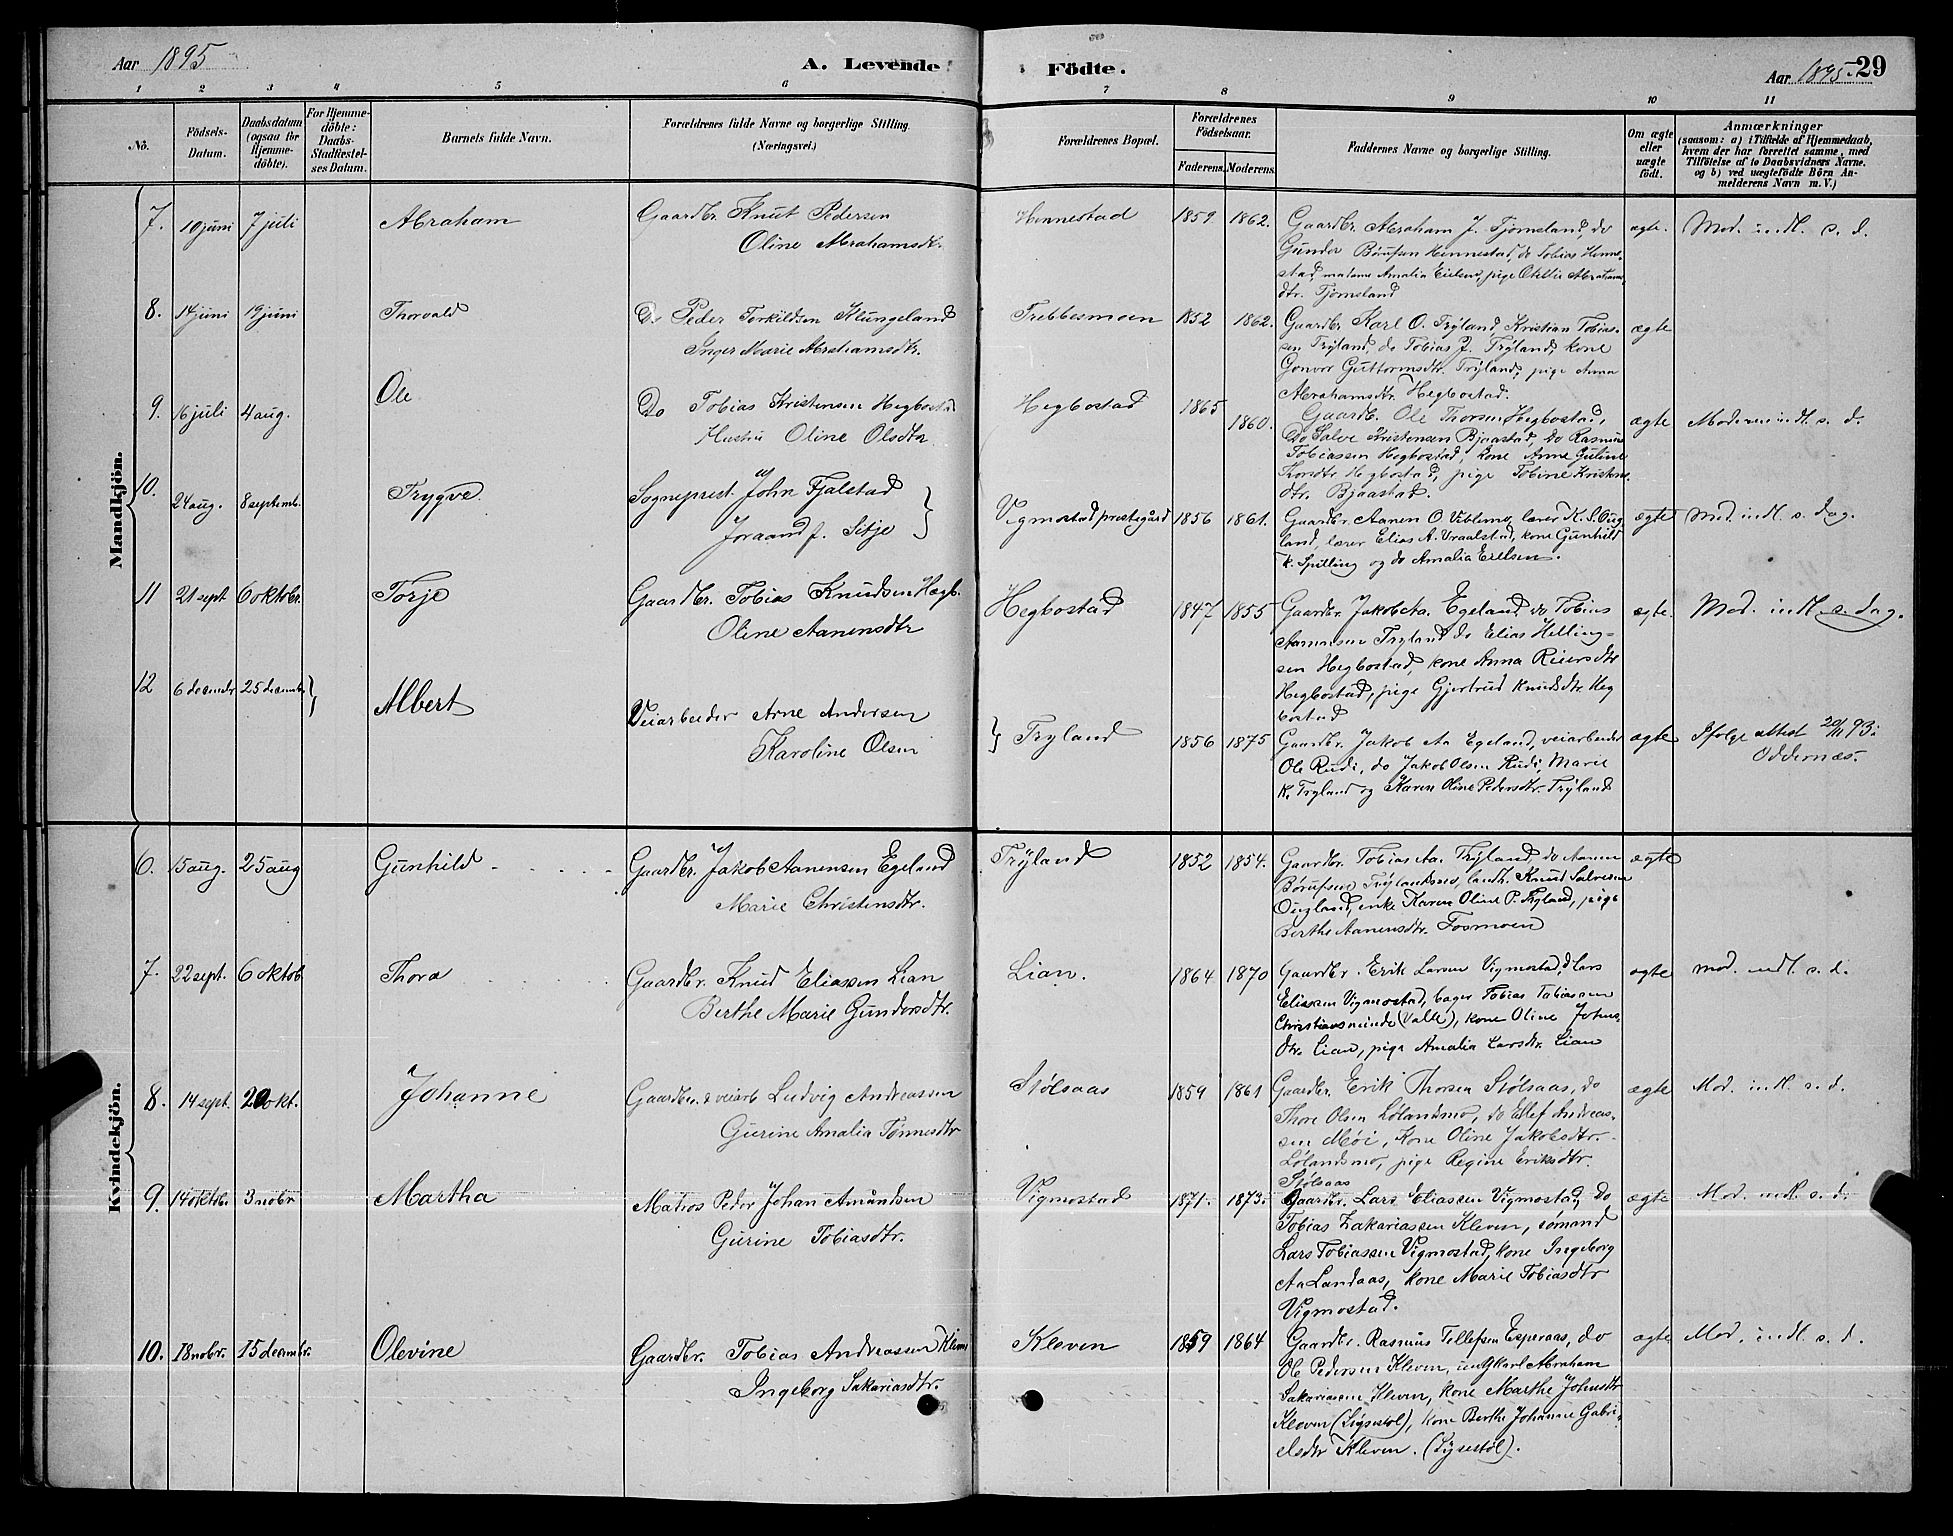 Aar 1895
A. Levende
Födte.
Aar 1895. 29
1 2 3 4 5 6 7 8 9 10 11
No.
Fødsels-Datum.
Daabsdatum (ogsaa for Hjemme-döbte).
For Hjemme-döbte: Daabs-Stadfæstel-ses Datum.
Barnets fulde Navn.
Forældrenes fulde Navne og borgerlige Stilling. (Næringsvei.)
Forældrenes Bopæl.
Forældrenes Födselsaar.
Faderens. Moderens.
Faddernes Navne og borgerlige Stilling.
Om ægte eller uægte födt.
Anmærkninger
(saasom: a) i Tilfælde af Hjemmedaab,
hvem der har forrettet samme, med
Tilföielse af to Daabsvidners Navne.
og b) ved uægtefödte Börn An-
melderens Navn m. V.)
Mandkjön.
7. 10 juni 7 juli Abraham Gaardbr. Knut Pedersen
Oline Abrahamsdtr.
Hennestad 1859 1862. Gaardbr. Abraham J. Tjomsland, do
Gunder Børufsen Hennestad, do Tobias Henne-
stad, madame Amalia Eielsen, pige Otellie Abrahams
dtr. Tjomsland
ægte. Mod. indl. s. d.
8. 14 juni 19 juni Thorvald Do Peder Torkildsen Klungeland
Inger Marie Abrahamsdtr.
Trebbesmoen 1852 1862. Gaardbr. Karl O. Trÿland, Kristian Tobias-
sen Trÿland, do Tobias J. Trÿland, kone
Gonvor Guttormsdtr. Trÿland, pige Anna
Abrahamsdtr. Hegbostad.
ægte
9. 16 juli 4 aug. Ole Do Tobias Kristensen Hegbostad
Hustru Oline Olsdtr.
Hegbostad 1865 1860. Gaardb. Ole Thorsen Hegbostad,
Do Salve Kristensen Bjaastad, do Rasmus
Tobiassen Hegbostad, kone Anne Guline
Thorsdtr Hegbostad, pige Tobine Kristens
dtr. Bjaastad.
ægte Moderen indl. s. d.
10. 24 aug. 8 septemb. Trygve. Sogneprest John Fjalstad
Joraand f. Sitje
Vigmostad prestegård 1856 1861. Gaardbr. Aanen O. Viblemo, lærer K. S. Oug-
land, lærer Elias A. Vraalstad, kone Gunhild
K. Spilling og do Amalia Eielsen.
ægte Mod. indl. s. dag.
11 21 sept 6 oktobr. Torje Gaardbr. Tobias Knudsen Hægb.
Oline Aanensdtr
Hegbostad 1847 1855 Gaardbr. Jakob Aa. Egeland, do Tobias
Aanensen Tryland do Elias Helling-
sen Hegbostad, kone Anna Reiersdtr
Hegbostad, pige Gjertrud Knudsdtr Heg
bostad
ægte. Mod. indl. s. dag.
12 6 decembr 25 decembr Albert Veiarbeider Arne Andersen
Karoline Olsen
Tryland 1856 1875 Gaardbr. Jakob Aa Egeland, veiarbeider
Ole Rudi, do Jakob Olsen Rudi, Marie
K. Tryland og Karen Oline Pedersdtr. Trÿland
ægte Ifølge attest 20/11 93 i
Oddernæs.
Kvindekjön.
6. 15 aug. 25 aug Gunhild Gaardbr. Jakob Aanensen Egeland
Marie Christensdtr.
Trÿland 1852 1854. Gaardbr. Tobias Aa. Trÿland, do Aanen
Børufsen Trÿlandsmo, landh. Knud Salvesen
Ougland, enke Karen Oline P. Tryland, pige
Berthe Aanensdtr. Fosmoen
ægte
7. 22 sept. 6 oktob Thora Gaardbr. Knud Eliassen Lian
Berthe Marie Gundersdtr.
Lian. 1864 1870 Gaardbr. Erik Larsen Vigmostad, d Lars
Eliassen Vigmostad, bager Tobias Tobiassen
Christiansminde (Valle), kone Oline Johns-
dtr. Lian, pige Amalia Larsdtr. Lian
ægte mod. indl. s. d.
8. 14 sept. 20 okt. Johanne Gaardbr. & veiarb Ludvig Andreassen
Gurine Amalia Tønnesdtr
Stølsaas 1859 1861 Gaardbr. Erik Thorsen Stølsaas, do
Thore Olsen Lølandsmo, do Ellef Andreas-
sen Møi, Kone Oline Jakobsdtr.
Lølandsmo, pige Regine Eriksdtr.
Stølsaas
ægte Mod. indl. s. d.
9. 14 oktbr. 3 nobr Martha Matros Peder Johan Amundsen
Gurine Tobiasdtr.
Vigmostad 1871. 1873. Gaardbr. Lars Eliassen Vigmostad, Do
Tobias Zakariassen Kleven, sømand
Lars Tobiassen Vigmostad, kone Ingeborg
Aa Landaas, kone Marie Tobiasdtr
Vigmostad.
ægte Mod. indl. s. d.
10. 18 nobr. 15 decembr. Olevine Gaardbr. Tobias Andreassen Kleven
Ingeborg Sakariasdtr.
Kleven 1859 1864 Gaardbr. Rasmus Tellefsen Esperaas, do
Ole Pedersen Kleven, ungkarl Abraham
Sakariassen Kleven, kone Marthe Johnsdtr
Kleven (Lÿsestøl), kone Berthe Johanne Gabri-
elsdtr Kleven. (Lÿsestøl).
ægte Mod. indl. s. d.